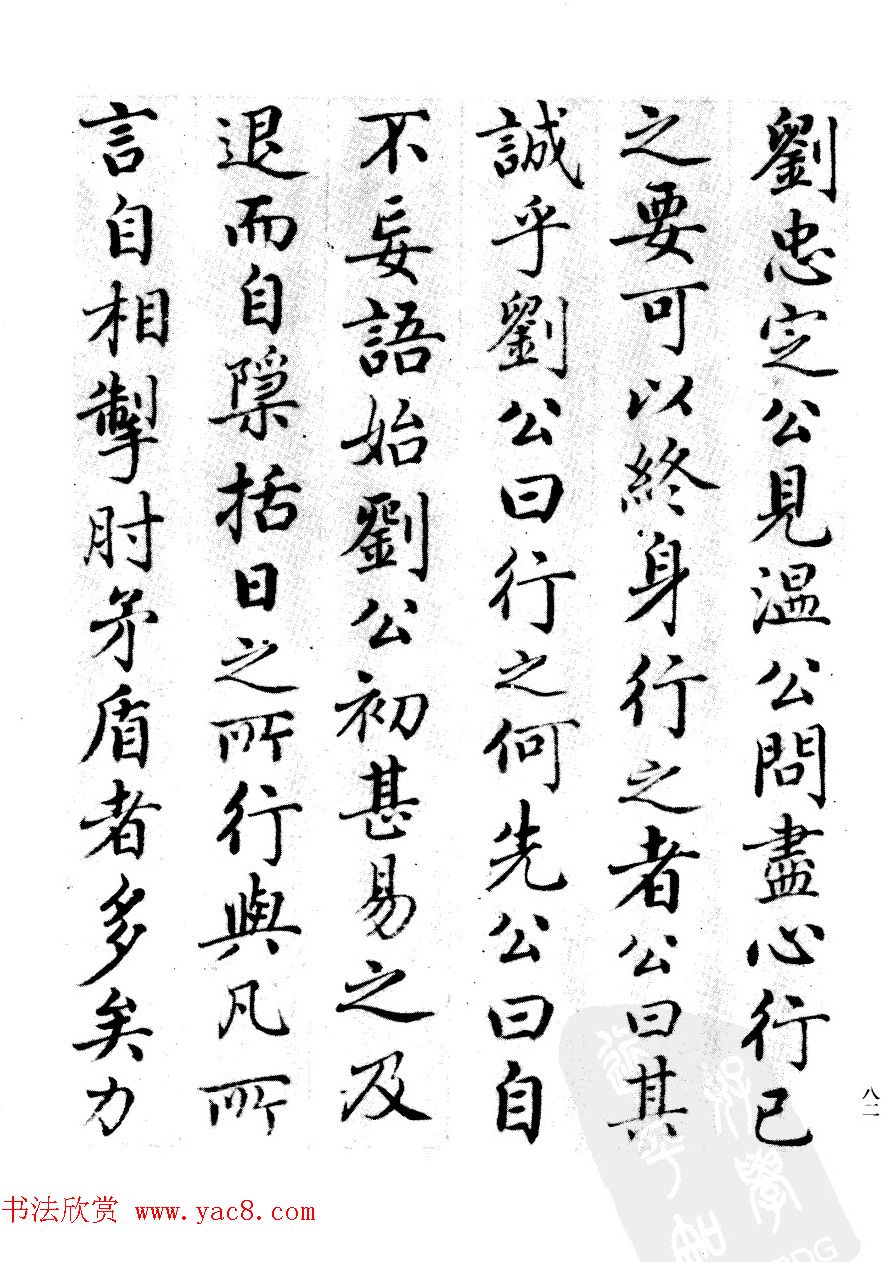 劉忠定公見溫公問盡心行己
之要可以終身行之者公曰其
誠乎劉公曰行之何先公曰自
不妄語始劉公初甚易之及
退而自隱括日之所行與凡所
言自相掣肘矛盾者多矣力
八二
书法欣赏 www.yac8.com